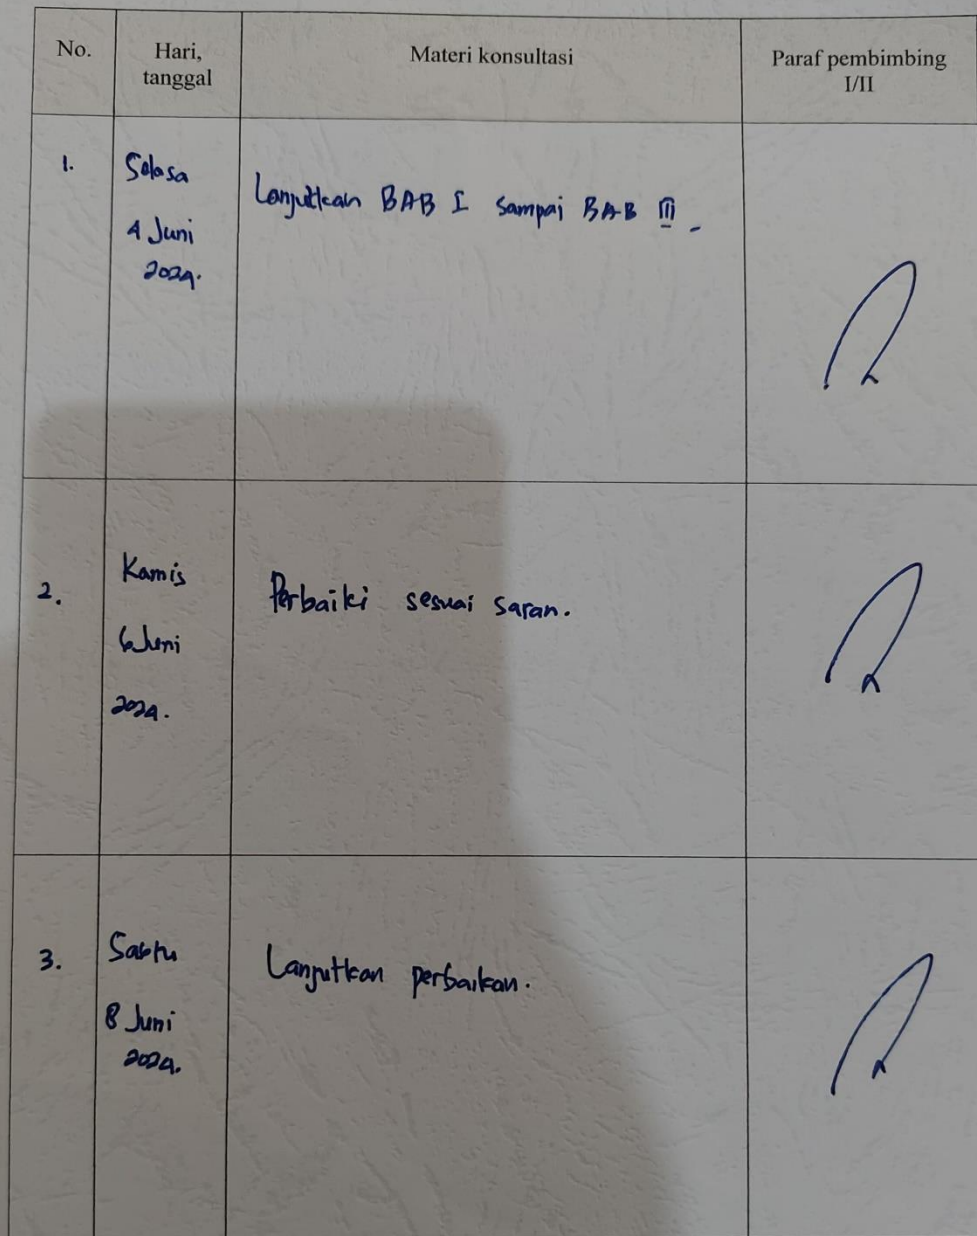 No.
Hari,
tanggal
Materi konsultasi
Paraf pembimbing
I/II
1.
Selasa
4 Juni
2024.
Lanjutkan BAB I sampai BAB III.
2.
Kamis
6 Juni
2024.
Perbaiki sesuai saran.
3.
Sabtu
8 Juni
2024.
Lanjutkan perbaikan.